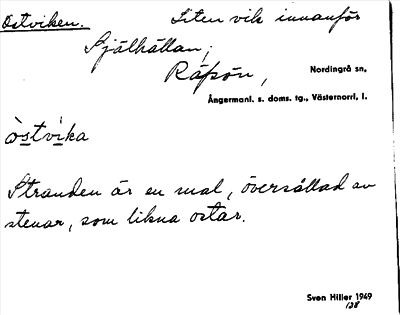 Ostviken. Liten vik innanför
Själhällan,
Råpön, Nordingrå sn,
Ångermanl. s. doms. tg., Västernorrl. l.
òstvìka
Stranden är en mal, översållad av
stenar, som likna ostar.
Sven Hiller 1949
128